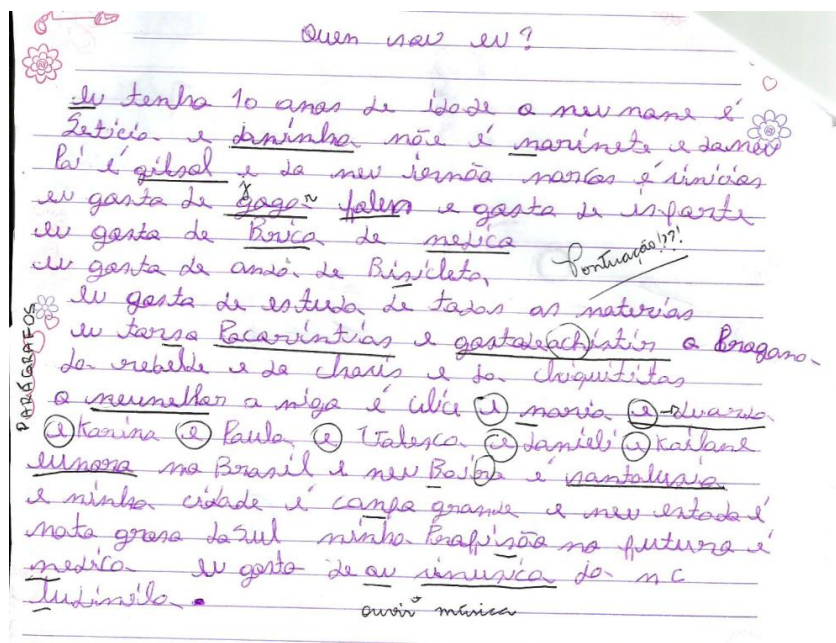 Quem sou eu?
Eu tenho 10 anos de idade o meu nome é
Leticia e daminha mãe é marinete e domeu
Pai é gilsol e do meu iermão marcos é vinicios
eu gosto de gogar folen e gosto de insporte
eu gosto de Brica de medica
Pontuação!??!
eu gosto de ando de Bisicleta,
Eu gosto de estuda de todas as materias
eu torso Pacorintias e gostodeachistir o Programa
PARÁGRAFOS
da rebelde e do chavis e da chiquititas
o meumelhor a miga é alice e maria e eduarda
e Karina e Paula e Valesca e danieli e Kailane
eumora no Brasil e meu Baira é santalusia
e minha cidade é campa grande e meu estado é
mato groso dosul minha Profisão no futura é
medica eu gosto de ou vimusica da mc
ludimila.
ouvir música